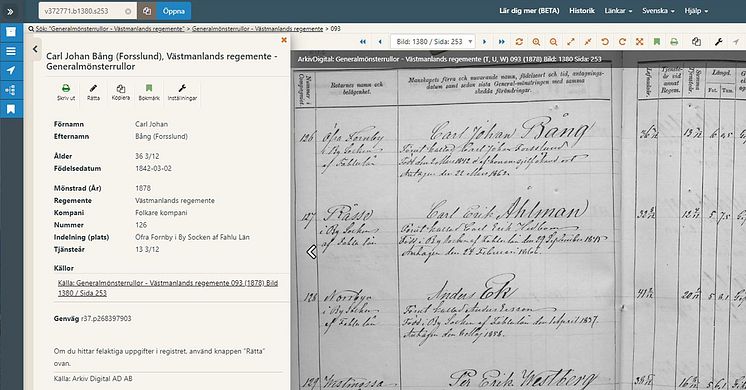 v372771.b1380.s253
Öppna
Lär dig mer (BETA) Historik Länkar Svenska Hjälp
Sök: "Generalmönsterrullor - Västmanlands regemente" > Generalmönsterrullor - Västmanlands regemente > 093
Carl Johan Bång (Forsslund), Västmanlands regemente - Generalmönsterrullor
Skriv ut Rätta Kopiera Bokmärk Inställningar
Förnamn Carl Johan
Efternamn Bång (Forsslund)
Ålder 36 3/12
Födelsedatum 1842-03-02
Mönstrad (År) 1878
Regemente Västmanlands regemente
Kompani Folkare kompani
Nummer 126
Indelning (plats) Öfra Fornby i By Socken af Fahlu Län
Tjänsteår 13 3/12
Källor
Källa: Generalmönsterrullor - Västmanlands regemente 093 (1878) Bild
1380 / Sida 253
Genväg r37.p268397903
Om du hittar felaktiga uppgifter i registret, använd knappen "Rätta"
ovan.
Källa: Arkiv Digital AD AB
Bild: 1380 / Sida: 253
ArkivDigital: Generalmönsterrullor - Västmanlands regemente (T, U, W) 093 (1878) Bild: 1380 Sida: 253
Rotarnes namn och
belägenhet.
Manskapets förra och nuvarande namn, födelseort och tid, antagnings-
datum samt sedan sista General-mönstringen med samma
skedda förändringar.
126 Öfra Fornby Carl Johan Bång
i By Socken Förut kallad Carl Johan Forsslund
af Fahlu län Född den 2 Mars 1842
Antagen den 22 Mars 1865.
127 Rässö Carl Erik Åhlman
i By Socken Förut kallad Carl Erik
af Fahlu län Född i By Socken af Fahlu län den 29 September 1845
Antagen den 24 Februari
128 Norrbyn Anders Ek
i By Socken Förut kallad Anders Ersson
af Fahlu län Född i By Socken af Fahlu län den 1 April 1837.
Antagen den 6 Maj 1858.
129 Per Erik Westberg